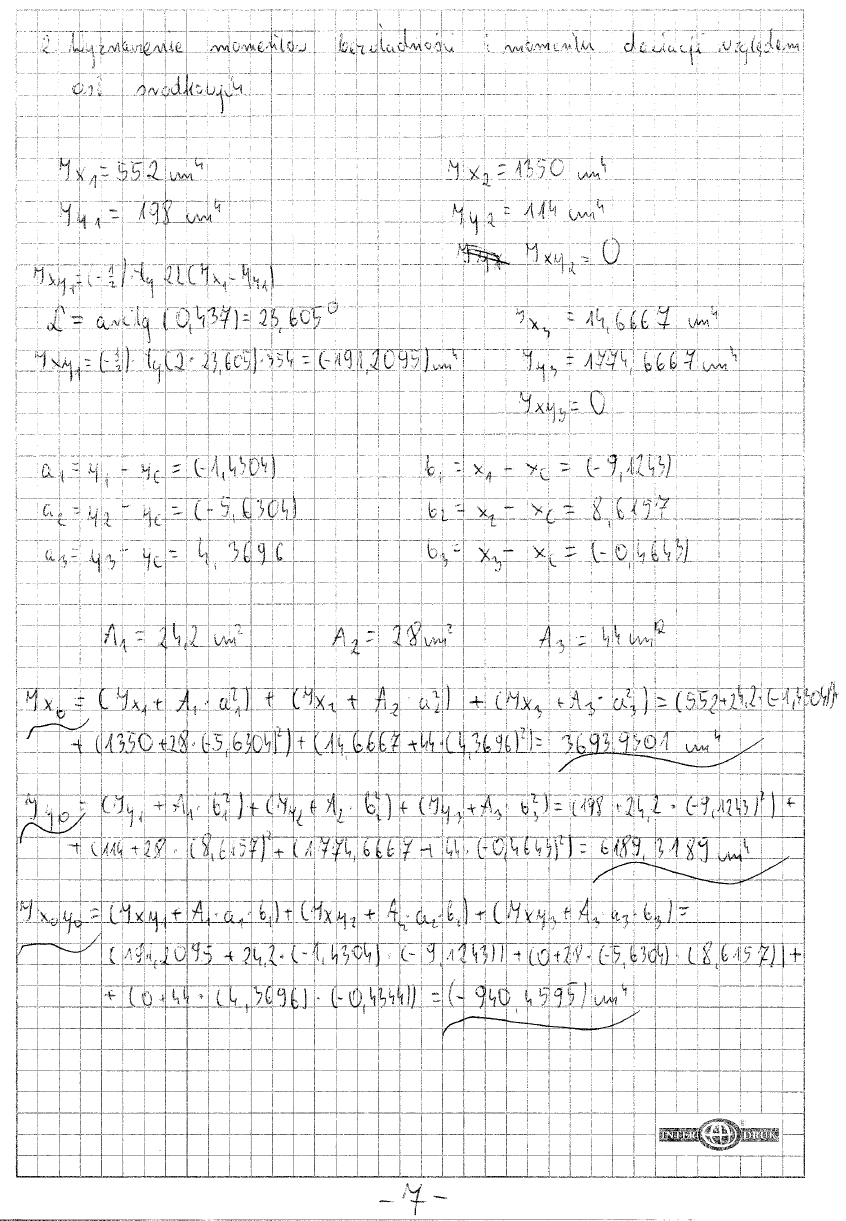 2 Wyznaczenie momentów bezwładności i momentu dewiacji względem
osi środkowych
Jx₁ = 552 cm⁴
Jy₁ = 198 cm⁴
Jxy₁ = (-½)·tg 2α(Jx₁ - Jy₁)
α = arctg (0,437) = 23,605⁰
Jxy₁ = (-½)·tg(2·23,605)·354 = (-191,2095) cm⁴
Jx₂ = 1350 cm⁴
Jy₂ = 114 cm⁴
Jxy₂ = 0
Jx₃ = 14,6667 cm⁴
Jy₃ = 1774,6667 cm⁴
Jxy₃ = 0
a₁ = y₁ - yc = (-1,4304)
a₂ = y₂ - yc = (-5,6304)
a₃ = y₃ - yc = 4,3696
b₁ = x₁ - xc = (-9,1243)
b₂ = x₂ - xc = 8,6157
b₃ = x₃ - xc = (-0,4643)
A₁ = 24,2 cm² A₂ = 28 cm² A₃ = 44 cm²
Jx₀ = (Jx₁ + A₁·a₁²) + (Jx₂ + A₂·a₂²) + (Jx₃ + A₃·a₃²) = (552+24,2·(-1,4304)²)+
+ (1350+28·(-5,6304)²) + (14,6667+44·(4,3696)²) = 3693,9501 cm⁴
Jy₀ = (Jy₁ + A₁·b₁²) + (Jy₂ + A₂·b₂²) + (Jy₃ + A₃·b₃²) = (198 + 24,2·(-9,1243)²) +
+ (114+28·(8,6157)² + (1774,6667 + 44·(-0,4643)²) = 6189,3189 cm⁴
Jx₀y₀ = (Jxy₁ + A₁·a₁·b₁) + (Jxy₂ + A₂·a₂·b₂) + (Jxy₃ + A₃·a₃·b₃) =
(191,2095 + 24,2·(-1,4304)·(-9,1243)) + (0+28·(-5,6304)·(8,6157)) +
+ (0+44·(4,3696)·(-0,4344)) = (-940,4595) cm⁴
INTER DRUK
-7-